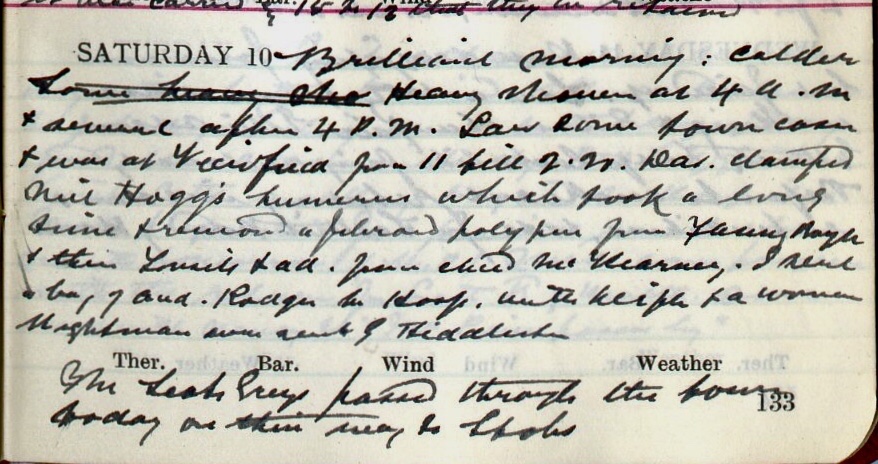 Bar. Wind
SATURDAY 10 Brilliant morning: colder
Some heavy sho Heavy showers at 4 A.M
& several after 4 P.M. Saw some town cases
& was at from 11 till 2.20. Das. clamped
Hogg's humerus which took a long
time & removed a fibroid polypus from Fanny
& then Tonsils & ad. from child Mc Kearney. I sent
a boy of And. Rodger to Hosp. with & a woman
Nightman was sent
Ther. Bar. Wind Weather
The Scots Greys passed through the town
133
today on their way to Stobs